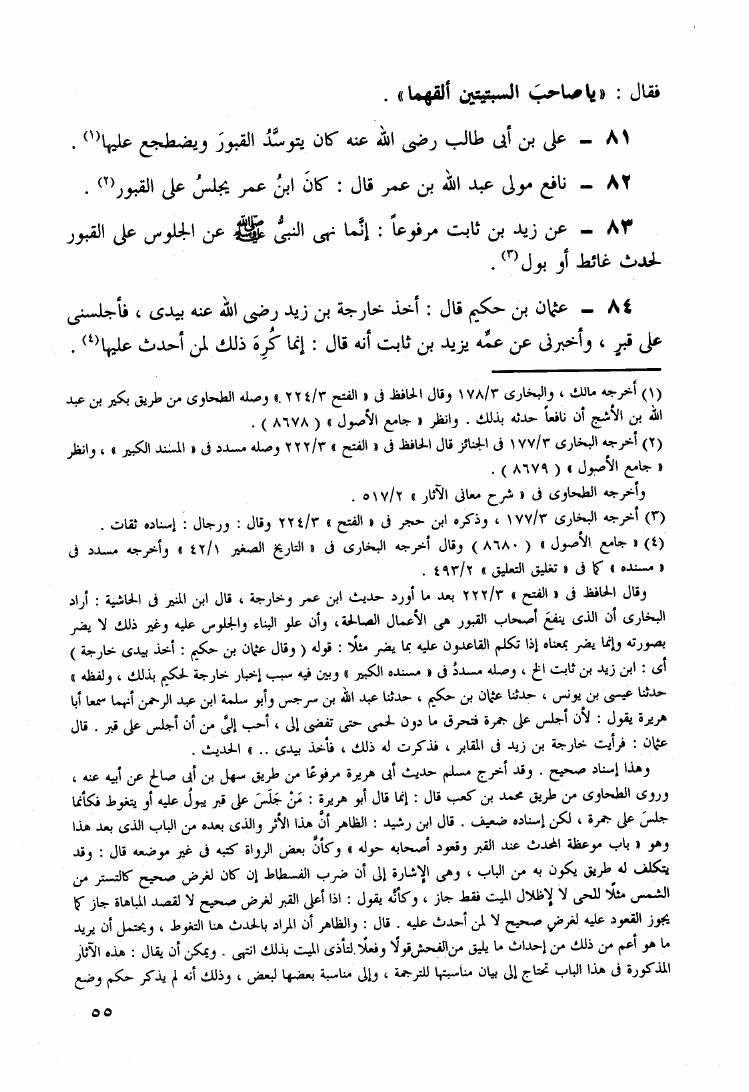 فقال : «ياصاحبَ السبتيتين ألقهما» .
٨١ – على بن أبى طالب رضى الله عنه كان يتوسَّدُ القبورَ ويضطجع عليها(١) .
٨٢ – نافع مولى عبد الله بن عمر قال : كانَ ابنُ عمر يجلسُ على القبور(٢) .
٨٣ – عن زيد بن ثابت مرفوعاً : إنَّما نهى النبىُّ ﷺ عن الجلوس على القبور
لحدث غائط أو بول(٣) .
٨٤ – عثمان بن حكيم قال : أخذ خارجة بن زيد رضى الله عنه بيدى ، فأجلسنى
على قبرٍ ، وأخبرنى عن عمِّه يزيد بن ثابت أنه قال : إنما كُرِهَ ذلك لمن أحدث عليها(٤) .
(١) أخرجه مالك ، والبخارى ١٧٨/٣ وقال الحافظ فى « الفتح ٢٢٤/٣ » وصله الطحاوى من طريق بكير بن عبد
الله بن الأشج أن نافعاً حدثه بذلك . وانظر « جامع الأصول » ( ٨٦٧٨ ) .
(٢) أخرجه البخارى ١٧٧/٣ فى الجنائز قال الحافظ فى « الفتح » ٢٢٢/٣ وصله مسدد فى « المسند الكبير » ، وانظر
« جامع الأصول » ( ٨٦٧٩ ) .
وأخرجه الطحاوى فى « شرح معانى الآثار » ٥١٧/٢ .
(٣) أخرجه البخارى ١٧٧/٣ ، وذكره ابن حجر فى « الفتح » ٢٢٤/٣ وقال : ورجال : إسناده ثقات .
(٤) « جامع الأصول » ( ٨٦٨٠ ) وقال أخرجه البخارى فى « التاريخ الصغير ٤٢/١ » وأخرجه مسدد فى
« مسنده » كما فى « تغليق التعليق » ٤٩٣/٢ .
وقال الحافظ فى « الفتح » ٢٢٢/٣ بعد ما أورد حديث ابن عمر وخارجة ، قال ابن المنير فى الحاشية : أراد
البخارى أن الذى ينفع أصحاب القبور هى الأعمال الصالحة، وأن علو البناء والجلوس عليه وغير ذلك لا يضر
بصورته وإنما يضر بمعناه إذا تكلم القاعدون عليه بما يضر مثلًا : قوله ( وقال عثمان بن حكيم : أخذ بيدى خارجة )
أى : ابن زيد بن ثابت الخ ، وصله مسددٌ فى « مسنده الكبير » وبين فيه سبب إخبار خارجة لحكيم بذلك ، ولفظه »
حدثنا عيسى بن يونس ، حدثنا عثمان بن حكيم ، حدثنا عبد الله بن سرجس وأبو سلمة ابن عبد الرحمن أنهما سمعا أبا
هريرة يقول : لأن أجلس على جمرة فتحرق ما دون لحمى حتى تفضى إلى ، أحب إلىَّ من أن أجلس على قبر . قال
عثمان : فرأيت خارجة بن زيد فى المقابر ، فذكرت له ذلك ، فأخذ بيدى .. » الحديث .
وهذا إسناد صحيح . وقد أخرج مسلم حديث أبى هريرة مرفوعًا من طريق سهل بن أبى صالح عن أبيه عنه ،
وروى الطحاوى من طريق محمد بن كعب قال : إنما قال أبو هريرة : مَنْ جَلَسَ على قبر يبولُ عليه أو يتغوط فكأنما
جلسَ على جمرة ، لكن إسناده ضعيف . قال ابن رشيد : الظاهر أنَّ هذا الأثر والذى بعده من الباب الذى بعد هذا
وهو « باب موعظة المحدث عند القبر وقعود أصحابه حوله » وكأنَّ بعض الرواة كتبه فى غير موضعه قال : وقد
يتكلف له طريق يكون به من الباب ، وهى الإشارة إلى أن ضرب الفسطاط إن كان لغرض صحيح كالتستر من
الشمس مثلًا للحى لا لإظلال الميت فقط جاز ، وكأنَّه يقول : اذا أعلى القبر لغرض صحيح لا لقصد المباهاة جاز كما
يجوز القعود عليه لغرضٍ صحيح لا لمن أحدث عليه . قال : والظاهر أن المراد بالحدث هنا التغوط ، ويحتمل أن يريد
ما هو أعم من ذلك من إحداث ما يليق من الفحش قولًا وفعلًا لتأذى الميت بذلك انتهى . ويمكن أن يقال : هذه الآثار
المذكورة فى هذا الباب تحتاج إلى بيان مناسبتها للترجمة ، وإلى مناسبة بعضها لبعض ، وذلك أنه لم يذكر حكم وضع
٥٥